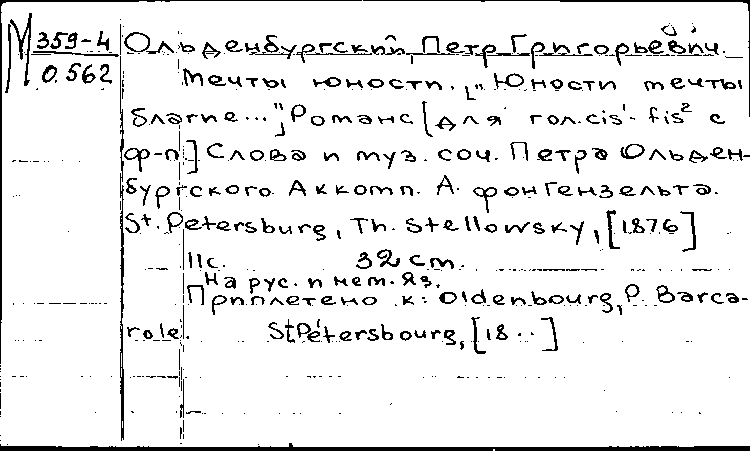 М 359-4
0.562
Ольденбургский, Петр Григорьевич.
Мечты юности. ["Юности мечты
благие..."] Романс [для гол. cis¹- fis² с
ф-п] Слова и муз. соч. Петра Ольден-
бургского. Аккомп. А. фон Гензельта.
St. Petersburg, Th. Stellowsky, [1876]
11 с. 32 cm.
На рус. и нем. яз.
Приплетено к: Oldenbourg, P. Barca-
role. St Pétersbourg, [18..]